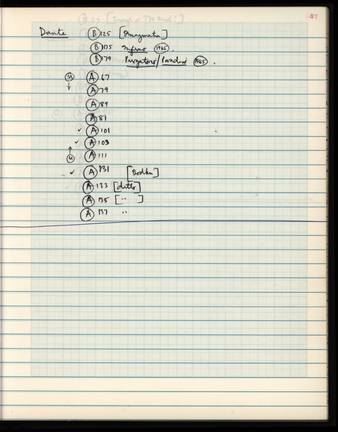 57
Dante (B) 125 [Purgatorio]
(B) 175 Inferno (1965)
(B) 179 Purgatorio/Paradiso (1965).
(A) 67
(A) 79
(A) 89
(A) 81
✓ (A) 101
✓ (A) 103
(A) 111
✓ (A) 131 [Bodka]
(A) 133 [ditto]
(A) 135 [ " ]
(A) 137 "